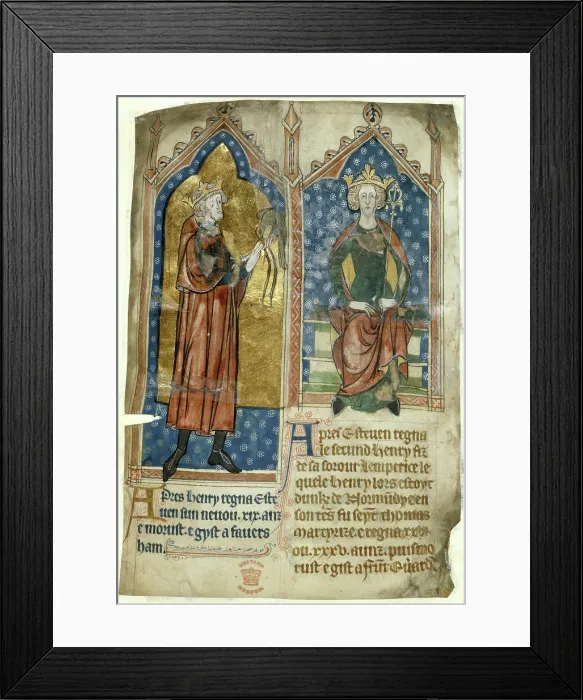 Apres henry regna Este
uen sun neuou .xix. aunz
e morust. e gyst a fauers
ham.
Apres Esteuen regna
le secund henry fiz
de sa sorour lemperice le
quele henry lors estoyt
duk de Normundy e en
son tens fu seynt thomas
martyrize. e regna
ou .xxxv. aunz. puis mo
rust e gist a